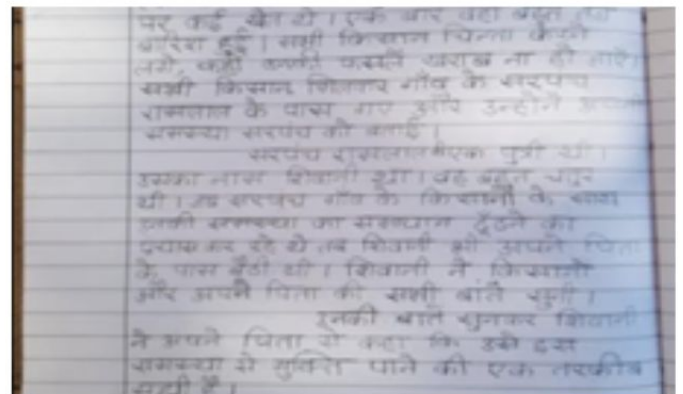 पर कई खेत थे। एक बार वहाँ बहुत तेज
बारिश हुई। सभी किसान चिन्ता करने
लगे, कहीं उनकी फसलें खराब ना हो जाएं।
सभी किसान मिलकर गाँव के सरपंच
रामलाल के पास गए और उन्होंने अपनी
समस्या सरपंच को बताई।
सरपंच रामलाल की एक पुत्री थी।
उसका नाम शिवानी था। वह बहुत चतुर
थी। जब सरपंच गाँव के किसानों के साथ
उनकी समस्या का समाधान ढूँढने का
प्रयास कर रहे थे तब शिवानी भी अपने पिता
के पास बैठी थी। शिवानी ने किसानों
और अपने पिता की सभी बातें सुनी।
उनकी बातें सुनकर शिवानी
ने अपने पिता से कहा कि उसे इस
समस्या से मुक्ति पाने की एक तरकीब
सूझी है।